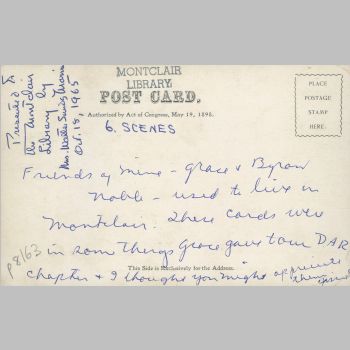 Presented to
the Montclair
Library by
Mrs.
Oct. 18, 1965
MONTCLAIR
LIBRARY
POST CARD.
Authorized by Act of Congress, May 19, 1898.
6. SCENES
PLACE
POSTAGE
STAMP
HERE.
Friends of mine - Grace & Byron
Noble - used to live in
Montclair. These cards were
in some things Grace gave to our DAR
chapter & I thought you might appreciate
This Side is Exclusively for the Address.
p8163